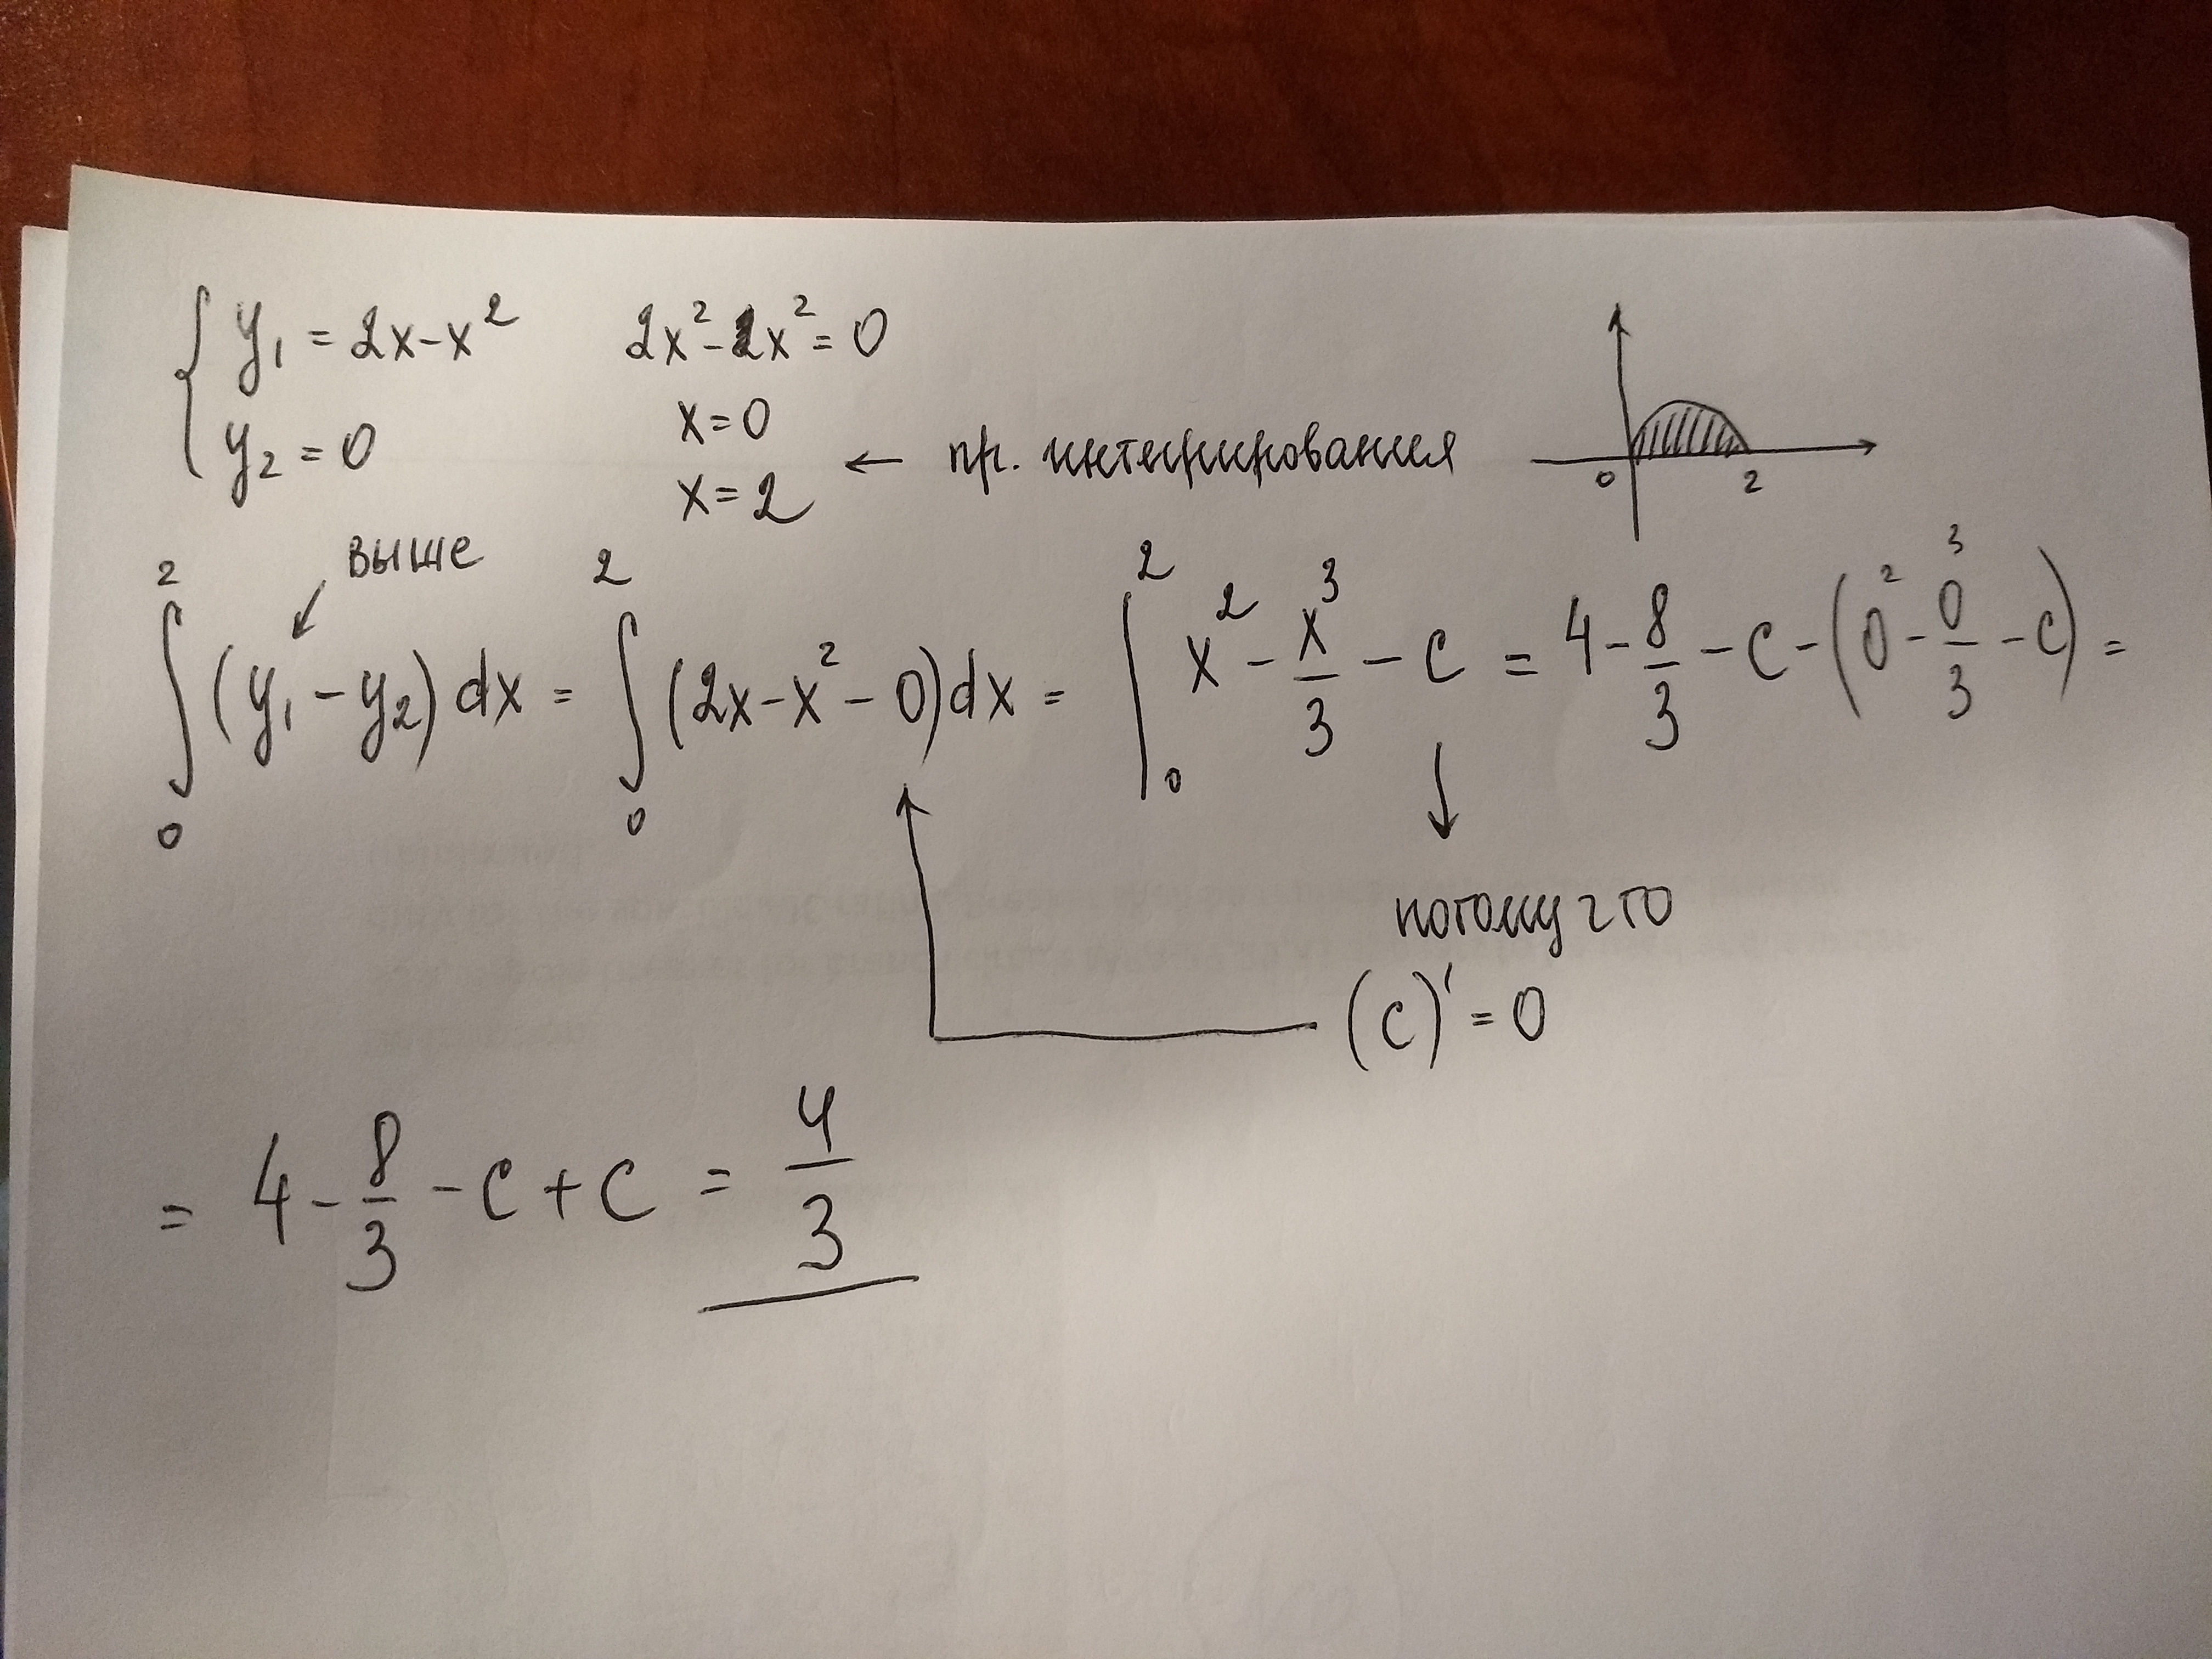 y₁ = 2x-x² 2x² - 2x² = 0
x=0
y₂ = 0 ← пр. интегрирования
x=2
0 2
выше
∫₀² (y₁ - y₂) dx = ∫₀² (2x-x² - 0) dx = |₀² x² - x³/3 - c = 4 - 8/3 - c - (0² - 0³/3 - c) =
потому что
(c)' = 0
= 4 - 8/3 - c + c = 4/3